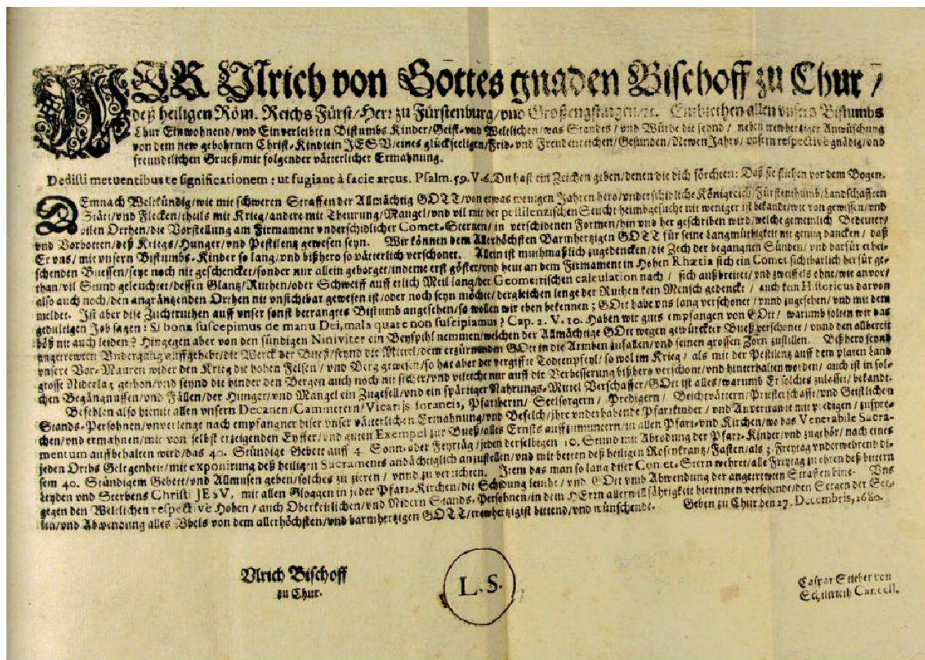 WIR Ulrich von Gottes gnaden Bischoff zu Chur /
deß heiligen Röm. Reichs Fürst / Herr zu Fürstenburg / vnd Großengstingen / ꝛc. Embiethen allen vnsers Bistumbs
Chur Einwohnend / vnd Einverleibten Bistumbs Kinder / Geist- vnd Weltlichen / was Standes / vnd Würde die seynd / neben trewhertziger Anwüschung
von dem new gebohrnen Christ-Kindlein JESV / eines glückseeligen / Frid- vnd Freudenreichen / Gesunden / Newen Jahrs / vnsern respectivè gnädig / vnd
freundlichen Grueß / mit folgender vätterlicher Ermahnung.
Dedisti metuentibus te significationem : ut fugiant à facie arcus. Psalm. 59. V. 6. Du hast ein Zeichen geben / denen die dich förchten : Daß sie fliehen vor dem Bogen.
DEmnach Weltkündig / wie mit schweren Straffen der Allmächtig GOTT / von etwas wenigen Jahren hero / vnderschidliche Königreich / Fürstenthumb / Landschafften
Stätt / vnd Flecken / theils mit Krieg / andere mit Theurung / Mangel / vnd vil mit der pestilenzischen Seucht heimbgesucht nit weniger ist bekandt / wie von gewisen / vnd
vilen Orthen / die Vorstellung am Firmament vnderschidlicher Comet-Sternen / in verschidenen Formen / hin vnd her geschriben wird / welche gemeinlich Bedeuter /
vnd Vorbotten / deß Kriegs / Hunger / vnd Pestilenz gewesen seyn. Wir können dem Allerhöchsten Barmhertzigen GOTT für seine Langmüthigkeit nit genug dancken / daß
Er vns / mit vnsern Bistumbs-Kinder so lang / vnd bißhero so vätterlich verschonet. Allein ist muthmaßlich zugedencken / die Zech der begangnen Sünden / vnd darfür erhei-
schenden Buessen / seye noch nit geschencket / sonder nur allein geborget / indeme erst göster / vnd heut an dem Firmament in Hohen Rhætia sich ein Comet sichtbarlich herfür ge-
than / vil Stund geleuchtet / dessen Glantz / Ruthen / oder Schweiff auff etlich Meil lang / der Geometrischen calculation nach / sich außbreitet / vnd zweifels ohne / wie anvor /
also auch noch / den angräntzenden Orthen nit vnsichtbar gewesen ist / oder noch seyn möchte / dergleichen lenge der Ruthen kein Mensch gedenckt / auch kein Historicus darvon
meldet. Ist aber dise Zuchtruthen auff vnser sonst betrangtes Bistumb angesehen / so wollen wir eben bekennen : GOtt habe vns lang verschonet / vnnd zugesehen / vnd mit dem
gedultigen Job sagen : Si bona suscepimus de manu Dei, mala quare non suscipiamus ? Cap. 2. V. 10. Haben wir guts empfangen von GOtt / warumb solten wir das
böß nit auch leiden ? Hingegen aber von den sündigen Niniviter ein Beyspihl nemmen / welchen der Allmächtige GOtt wegen gewürckter Bueß verschonet / vnnd den allbereit
angetrewten Vndergang auffgehebt / die Werck der Bueß / seynd die Mittel / dem erzürnenden GOtt in die Armben zufallen / vnd seinen grossen Zorn zustillen. Bißhero seynd
vnsere Vor-Mauren wider den Krieg die hohen Felsen / vnd Berg gewesen / so hat aber der vergiffte Todtenpfeyl / so wol im Krieg / als mit der Pestilenz auff dem platen Land
grosse Niderlag gethon / vnd seynd die hinder den Bergen auch noch nit sicher / vnd villeicht nur auff die Verbesserung bißhero verschonet / vnd hinterhalten worden / auch ist in sol-
chen Begängnussen / vnd Fällen / der Hunger / vnd Mangel ein Zugesell / vnd ein spärriger Nahrungs-Mittel Verschaffer / GOtt ist alles / warumb Er solches zulasset / bekandt.
Befehlen also hiemit allen vnsern Decanen / Cammerern / Vicarijs foraneis, Pfarrherrn / Seelsorgern / Predigern / Beichtvättern / Priesterschafft / vnd Geistlichen
Stands-Persohnen / vnverlenge nach empfangner diser vnser vätterlichen Ermahnung / vnd Befelch / jhre vnderhabende Pfarrkinder / vnd Anvertraute mit predigen / zuspre-
chen / vnd ermahnen / mit von selbst erzeigenden Eyffer / vnd guten Exempel zur Bueß / alles Ernsts auffzumuntern / in allen Pfarr- vnd Kirchen / wo das Venerabile Sacra-
mentum auffbehalten wird / das 40. Stündige Gebett auff 4. Sonn- oder Feyrtäg / jeden derselbigen 10. Stund mit Abredung der Pfarr-Kinder / vnd zugehör / nach eines
jeden Orths Gelegenheit / mit exponirung deß heiligen Sacraments andächtiglich anzustellen / vnd mit betten deß heiligen Rosenkrantz / Fasten / als 3. Freytag vnderwehrend di-
sem 40. Stündigem Gebett / vnd Allmusen geben / solches zu zieren / vnnd zu verrichten. Item das man so lang diser Comet-Stern wehret / alle Freytag zu ehren deß bittern
Leyden vnd Sterbens Christi JESV, mit allen Gloggen in jeder Pfarr-Kirchen / die Schidung leuthe / vnd GOtt vmb Abwendung der angetrewten Straffen bitte. Vns
gegen den Weltlichen respectivè Hohen / auch Oberkeitlichen / vnd Nidern Stands-Persohnen / in dem HErrn aller willfährigkeit hierinnen versehende / den Seegen der See-
len / vnd Abwendung alles Vbels von dem allerhöchsten / vnd barmhertzigen GOTT / trewhertzigist bittend / vnd wünschende. Geben zu Chur den 27. Decembris, 1680.
Vlrich Bischoff
zu Chur.
L. S.
Caspar Stieber von
Cancell.